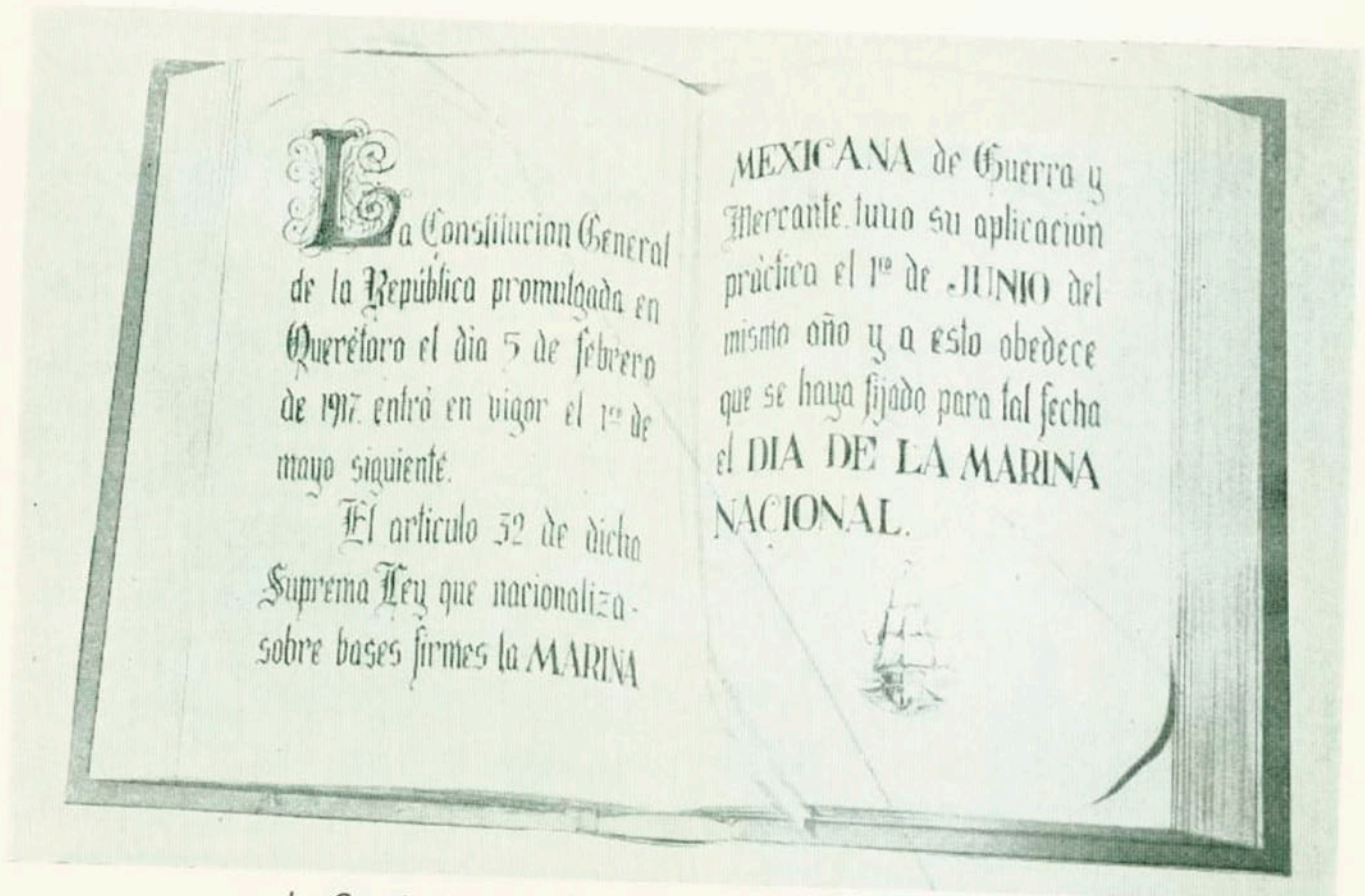 La Constitucion General
de la República promulgada en
Querétaro el dia 5 de febrero
de 1917. entró en vigor el 1º de
mayo siguiente.
El articulo 32 de dicha
Suprema Ley que nacionaliza-
sobre bases firmes la MARINA
MEXICANA de Guerra y
Mercante. tuvo su aplicación
práctica el 1º de JUNIO del
mismo año y a esto obedece
que se haya fijado para tal fecha
el DIA DE LA MARINA
NACIONAL.